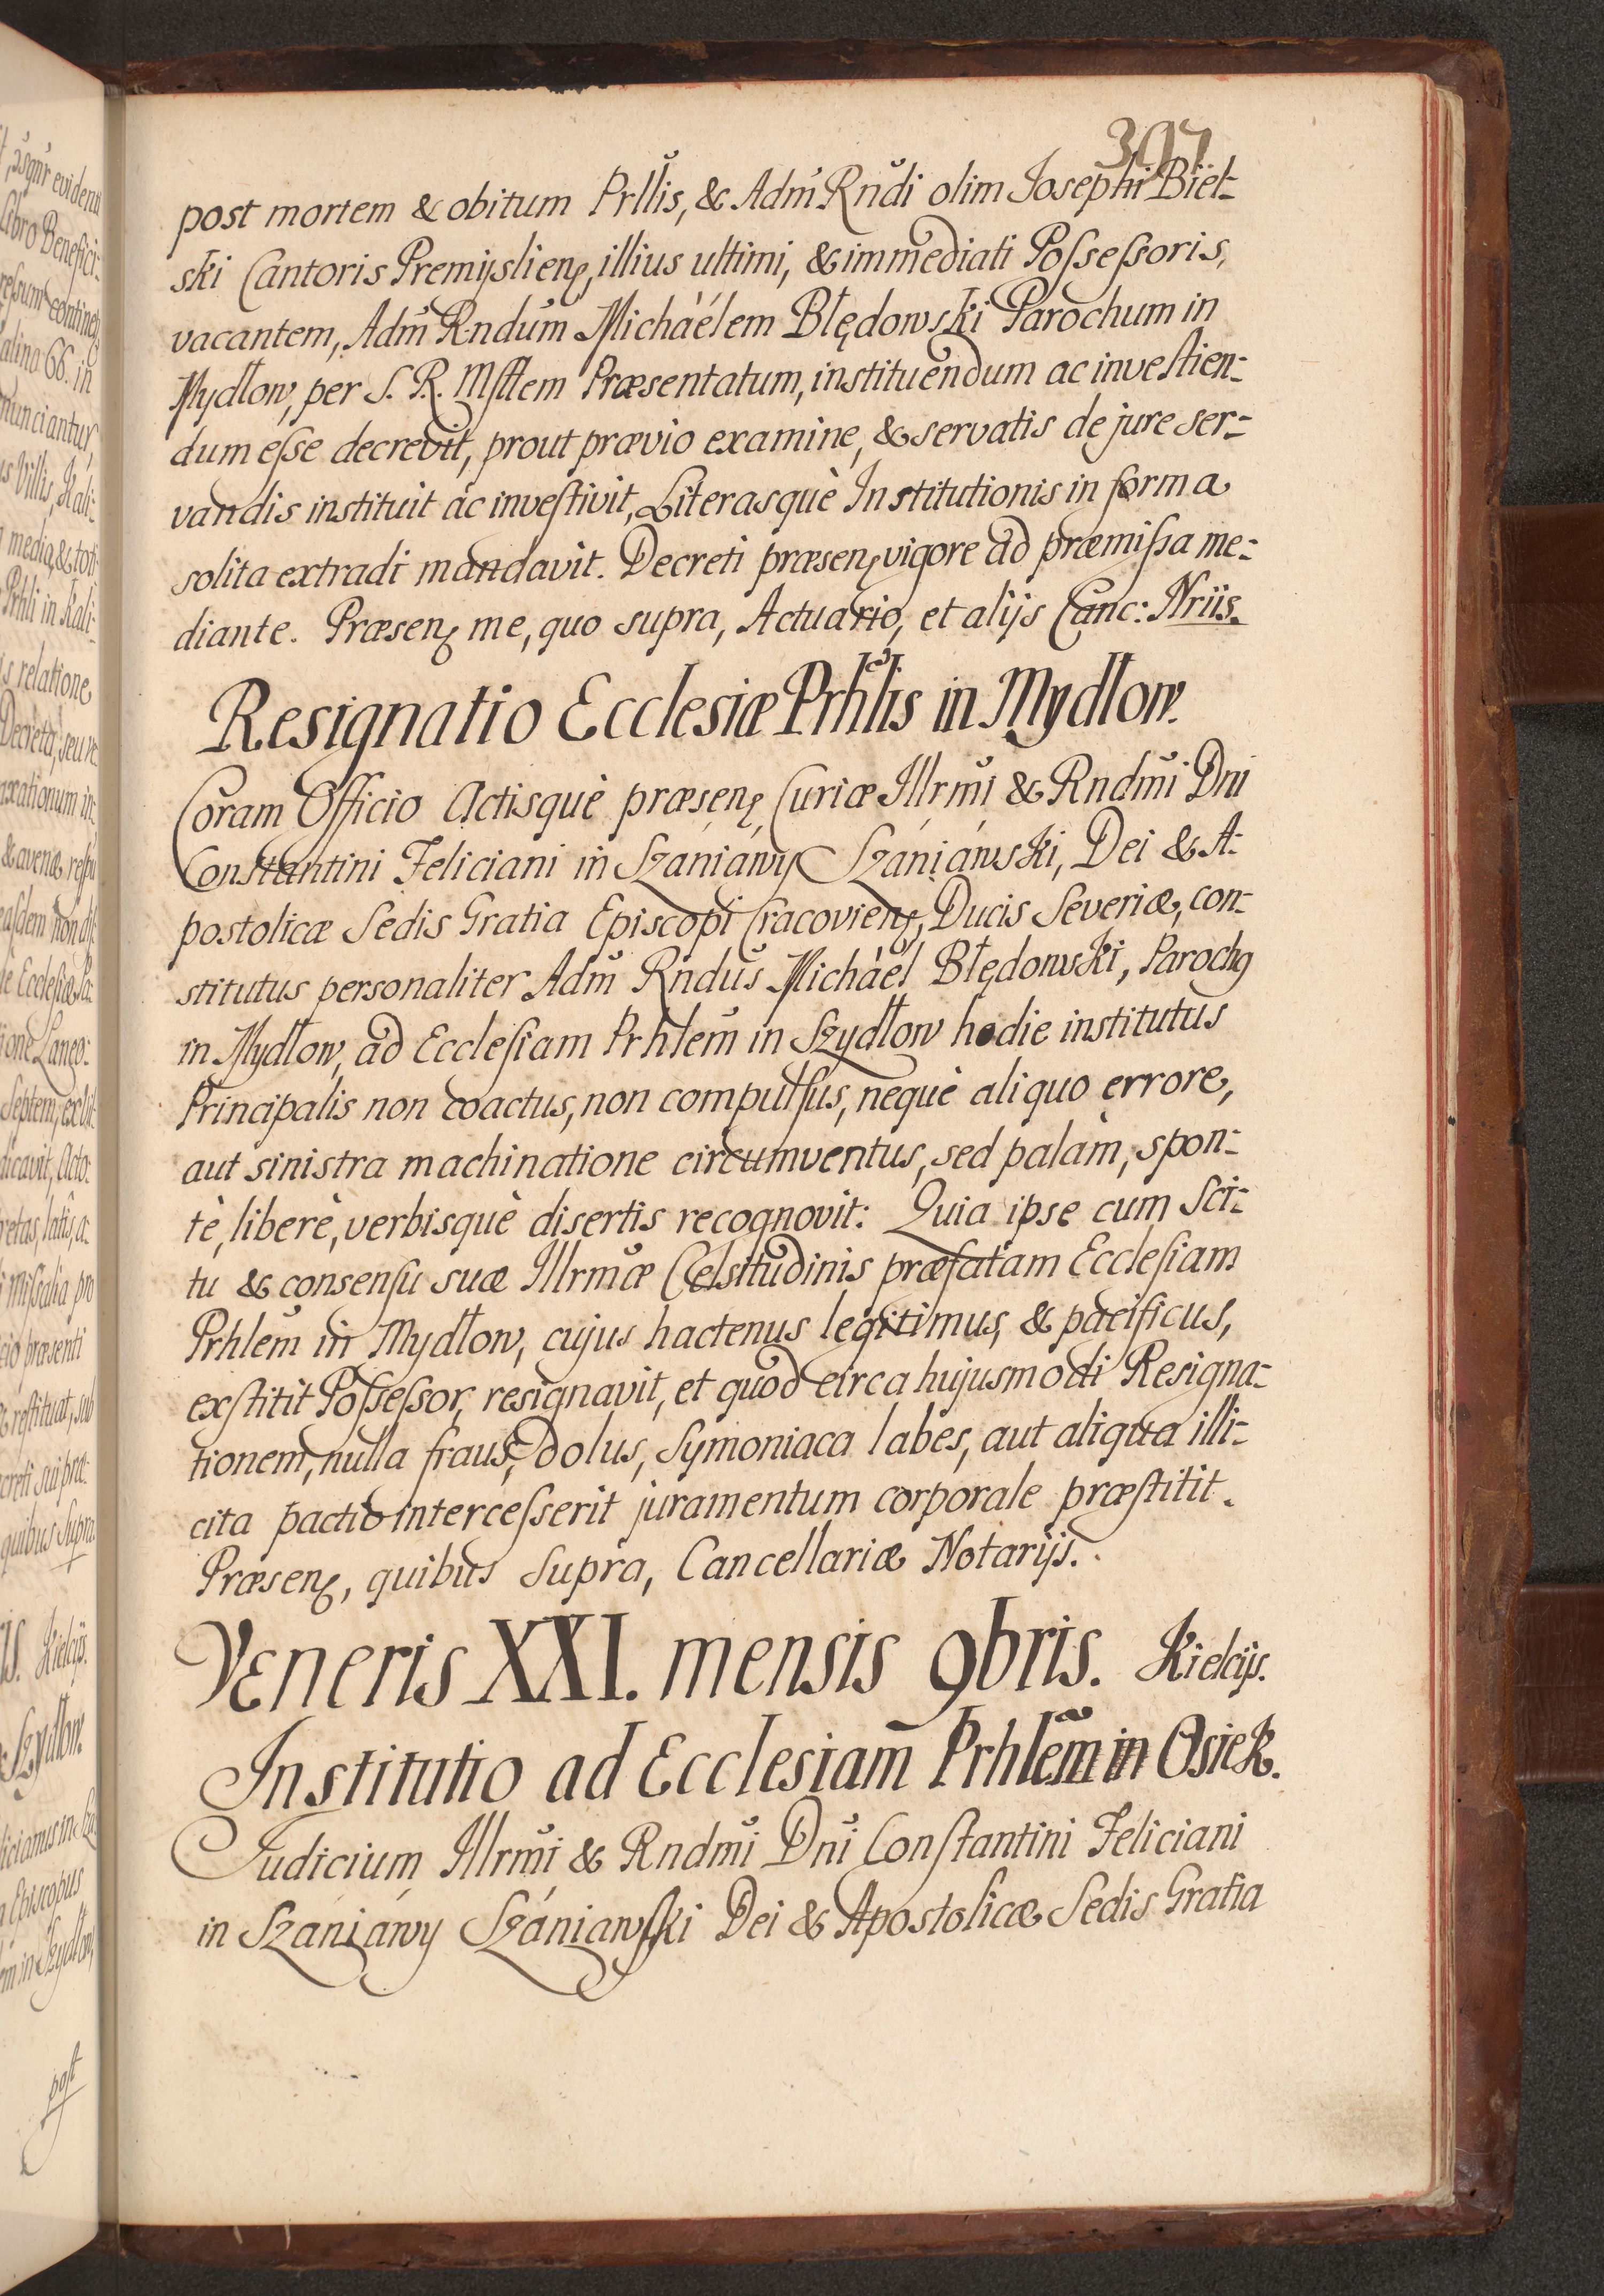 307
post mortem & obitum Prllis, & Adm̃ Rñdi olim Josephi Biel-
ski Cantoris Premijslien̨, illius ultimi, & immediati Poſseſsoris,
vacantem, Adm̃ Rndũm Michàélem Błędowski Parochum in
Mydłow, per S. R. Mſttem Præsentatum, instituendum ac inveſtien-
dum eſse decrevit, prout prævio examine, & servatis de jure ser-
vandis instituit ac inveſtivit, Literasquè Institutionis in forma
solita extradi mandavit. Decreti præsen̨ vigore ad præmiſsa me-
diante. Præsen̨ me, quo supra, Actuario, et alijs Canc: Nriis.
Resignatio Ecclesiæ Prhlis in Mydłow.
Coram Officio Actisquè præsen̨ Curiæ Illrm̃i & Rndm̃i Dni
Constantini Feliciani in Szániáwy Szániáwski, Dei & A-
postolicæ Sedis Gratia Episcopi Cracovien̨, Ducis Severiæ, con-
stitutus personaliter Adm̃ Rndũs Michàél Błędowski, Parochꝯ
in Mydłow, ad Eccleſiam Prhlem̃ in Szydłow hodie institutus
Principalis non coactus, non compulſus, nequè aliquo errore,
aut sinistra machinatione circumventus, sed palàm, spon-
tè, liberè, verbisquè disertis recognovit: Quia ipse cum Sci-
tu & consenſu suæ Illrmæ̃ Celsitudinis præfatam Eccleſiam
Prhlem̃ in Mydłow, cujus hactenus legitimus, & pacificus,
exſtitit Poſseſsor, resignavit, et quod circa hujusmodi Resigna-
tionem, nulla fraus, dolus, Symoniaca labes, aut aliqua illi-
cita pactio interceſserit juramentum corporale præſtitit.
Præsen̨, quibus Supra, Cancellariæ Notarijs.
Veneris XXI. mensis 9bris. Kielcijs.
Institutio ad Ecclesiam̄ Prhlem̃ in Osiek.
Judicium Illrm̃i & Rndm̃i Dñi Conſtantini Feliciani
in Szániáwy Szániawſki Dei & Apostolicæ Sedis Gratia